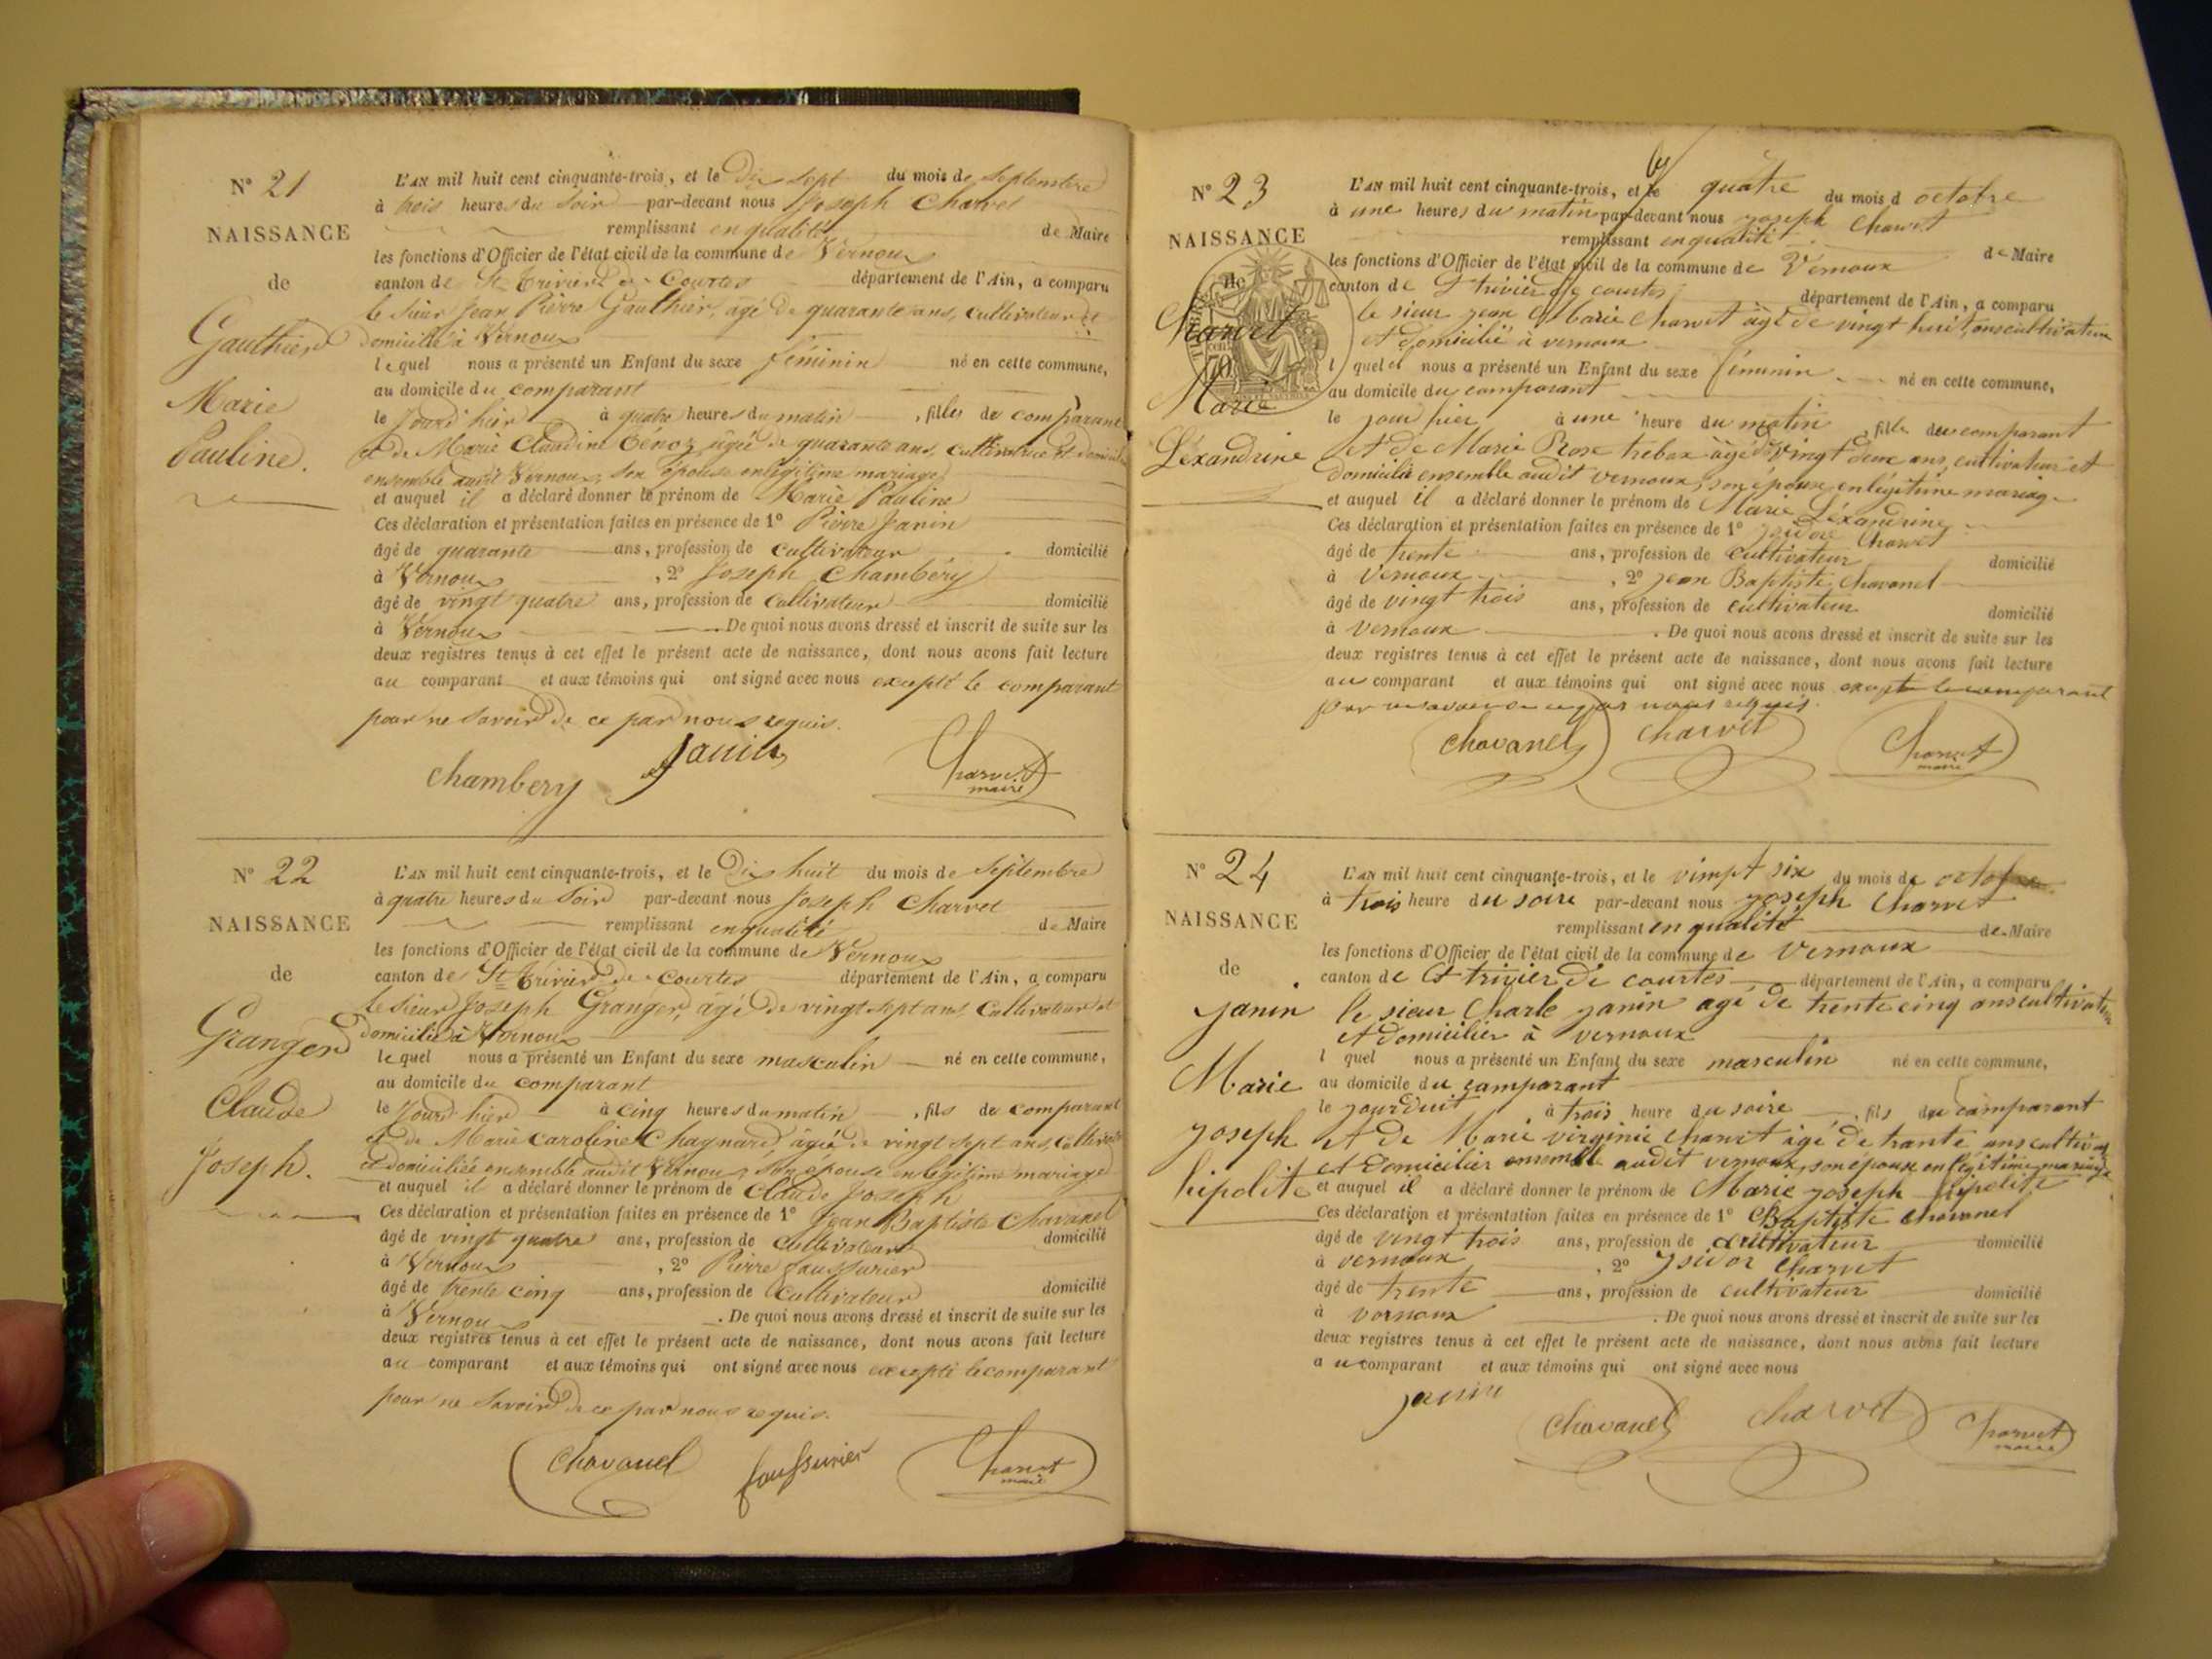 N° 21
NAISSANCE
de
Gauthier
Marie
Pauline.
L'AN mil huit cent cinquante-trois, et le Dix sept du mois de Septembre
à trois heures du Soir par-devant nous Joseph Charvet
remplissant en qualité de Maire
les fonctions d'Officier de l'état civil de la commune de Vernoux
canton de St Trivier de Courtes département de l'Ain, a comparu
le Sieur Jean Pierre Gauthier, âgé de quarante ans, Cultivateur et
domicilié à Vernoux
lequel nous a présenté un Enfant du sexe féminin né en cette commune,
au domicile du comparant
le Jourd'hier à quatre heures du matin, fille du comparant
et de Marie Claudine Tenoz âgée de quarante ans, cultivatrice et domiciliée
ensemble audit Vernoux, son épouse en légitime mariage
et auquel il a déclaré donner le prénom de Marie Pauline
Ces déclaration et présentation faites en présence de 1° Pierre Janin
âgé de quarante ans, profession de cultivateur domicilié
à Vernoux, 2° Joseph Chambéry
âgé de vingt quatre ans, profession de Cultivateur domicilié
à Vernoux. De quoi nous avons dressé et inscrit de suite sur les
deux registres tenus à cet effet le présent acte de naissance, dont nous avons fait lecture
au comparant et aux témoins qui ont signé avec nous excepté le comparant
pour ne Savoir de ce par nous requis.
Chambery Janin Charvet
maire
N° 22
NAISSANCE
de
Granger
Claude
Joseph.
L'AN mil huit cent cinquante-trois, et le Dix huit du mois de Septembre
à quatre heures du Soir par-devant nous Joseph Charvet
remplissant en qualité de Maire
les fonctions d'Officier de l'état civil de la commune de Vernoux
canton de St Trivier de Courtes département de l'Ain, a comparu
le Sieur Joseph Granger, âgé de vingt sept ans, Cultivateur et
domicilié à Vernoux
lequel nous a présenté un Enfant du sexe masculin né en cette commune,
au domicile du comparant
le Jourd'hier à cinq heures du matin, fils du comparant
et de Marie Caroline Chagnard, âgée de vingt sept ans,
et domiciliée ensemble audit Vernoux, son épouse en légitime mariage
et auquel il a déclaré donner le prénom de Claude Joseph
Ces déclaration et présentation faites en présence de 1° Jean Baptiste Chavanel
âgé de vingt quatre ans, profession de Cultivateur domicilié
à Vernoux, 2° Pierre Faussurier
âgé de trente cinq ans, profession de Cultivateur domicilié
à Vernoux. De quoi nous avons dressé et inscrit de suite sur les
deux registres tenus à cet effet le présent acte de naissance, dont nous avons fait lecture
au comparant et aux témoins qui ont signé avec nous excepté le comparant
pour ne Savoir de ce par nous requis.
Chavanel faussurier Charvet
maire
N° 23
NAISSANCE
de
Charvet
Marie
Léxandrine
L'AN mil huit cent cinquante-trois, et le quatre du mois d octobre
à une heures du matin par-devant nous joseph Charvet
remplissant en qualité de Maire
les fonctions d'Officier de l'état civil de la commune de Vernoux
canton de St trivier de courtes département de l'Ain, a comparu
le sieur jean Marie Charvet âgé de vingt huit ans cultivateur
et domicilié à vernoux
l quel nous a présenté un Enfant du sexe féminin né en cette commune,
au domicile du comparant
le jour hier à une heure du matin, fille du comparant
et de Marie Rose treboz âgé de vingt deux ans, cultivateur et
domicilié ensemble audit vernoux, son épouse en légitime mariage
et auquel il a déclaré donner le prénom de Marie Léxandrine
Ces déclaration et présentation faites en présence de 1° jsidore Charvet
âgé de trente ans, profession de cultivateur domicilié
à vernoux, 2° jean Baptiste Chavanel
âgé de vingt trois ans, profession de cultivateur domicilié
à vernoux. De quoi nous avons dressé et inscrit de suite sur les
deux registres tenus à cet effet le présent acte de naissance, dont nous avons fait lecture
au comparant et aux témoins qui ont signé avec nous exepte le comparant
pour ne savoir de ce par nous requis.
Chavanel Charvet Charvet
maire
N° 24
NAISSANCE
de
janin
Marie
joseph
hipolite
L'AN mil huit cent cinquante-trois, et le vimpt six du mois de octobre
à trois heure du soire par-devant nous joseph Charvet
remplissant en qualité de Maire
les fonctions d'Officier de l'état civil de la commune de vernoux
canton de St trivier de courtes département de l'Ain, a comparu
le sieur Charle janin agé de trente cinq ans cultivateur
et domicilier à vernoux
l quel nous a présenté un Enfant du sexe masculin né en cette commune,
au domicile du comparant
le jourduit à trois heure du soire, fils du comparant
et de Marie virginie Charvet âgé de trante ans
et domicilier ensemble audit vernoux, son épouse en légitime mariage
et auquel il a déclaré donner le prénom de Marie joseph hipolite
Ces déclaration et présentation faites en présence de 1° Baptiste Chavanel
âgé de vingt trois ans, profession de cultivateur domicilié
à vernoux, 2° jsidor Charvet
âgé de trente ans, profession de cultivateur domicilié
à vornoux. De quoi nous avons dressé et inscrit de suite sur les
deux registres tenus à cet effet le présent acte de naissance, dont nous avons fait lecture
au comparant et aux témoins qui ont signé avec nous
janin Chavanel Charvet Charvet
maire